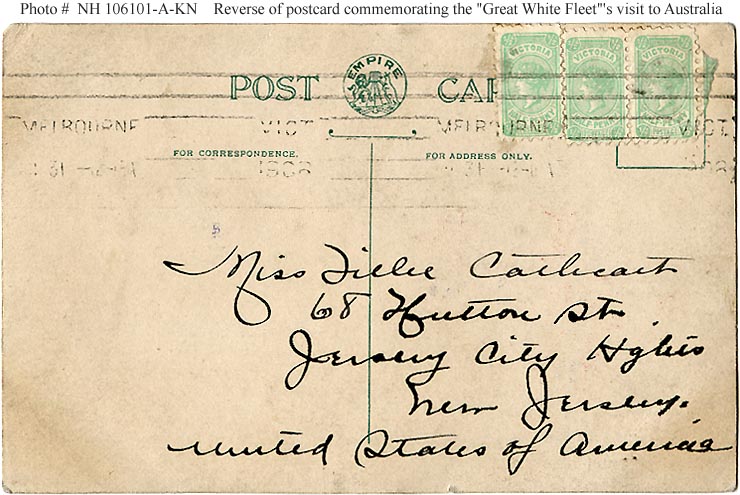 Photo # NH 106101-A-KN Reverse of postcard commemorating the "Great White Fleet"'s visit to Australia
VICTORIA VICTORIA VICTORIA
EMPIRE
POST CAR
MELBOURNE VICT MELBOURNE VICT.
1908
FOR CORRESPONDENCE. FOR ADDRESS ONLY.
Miss Tillie Cathcart
68 Hutton St.
Jersey City Hghts
New Jersey.
United States of America